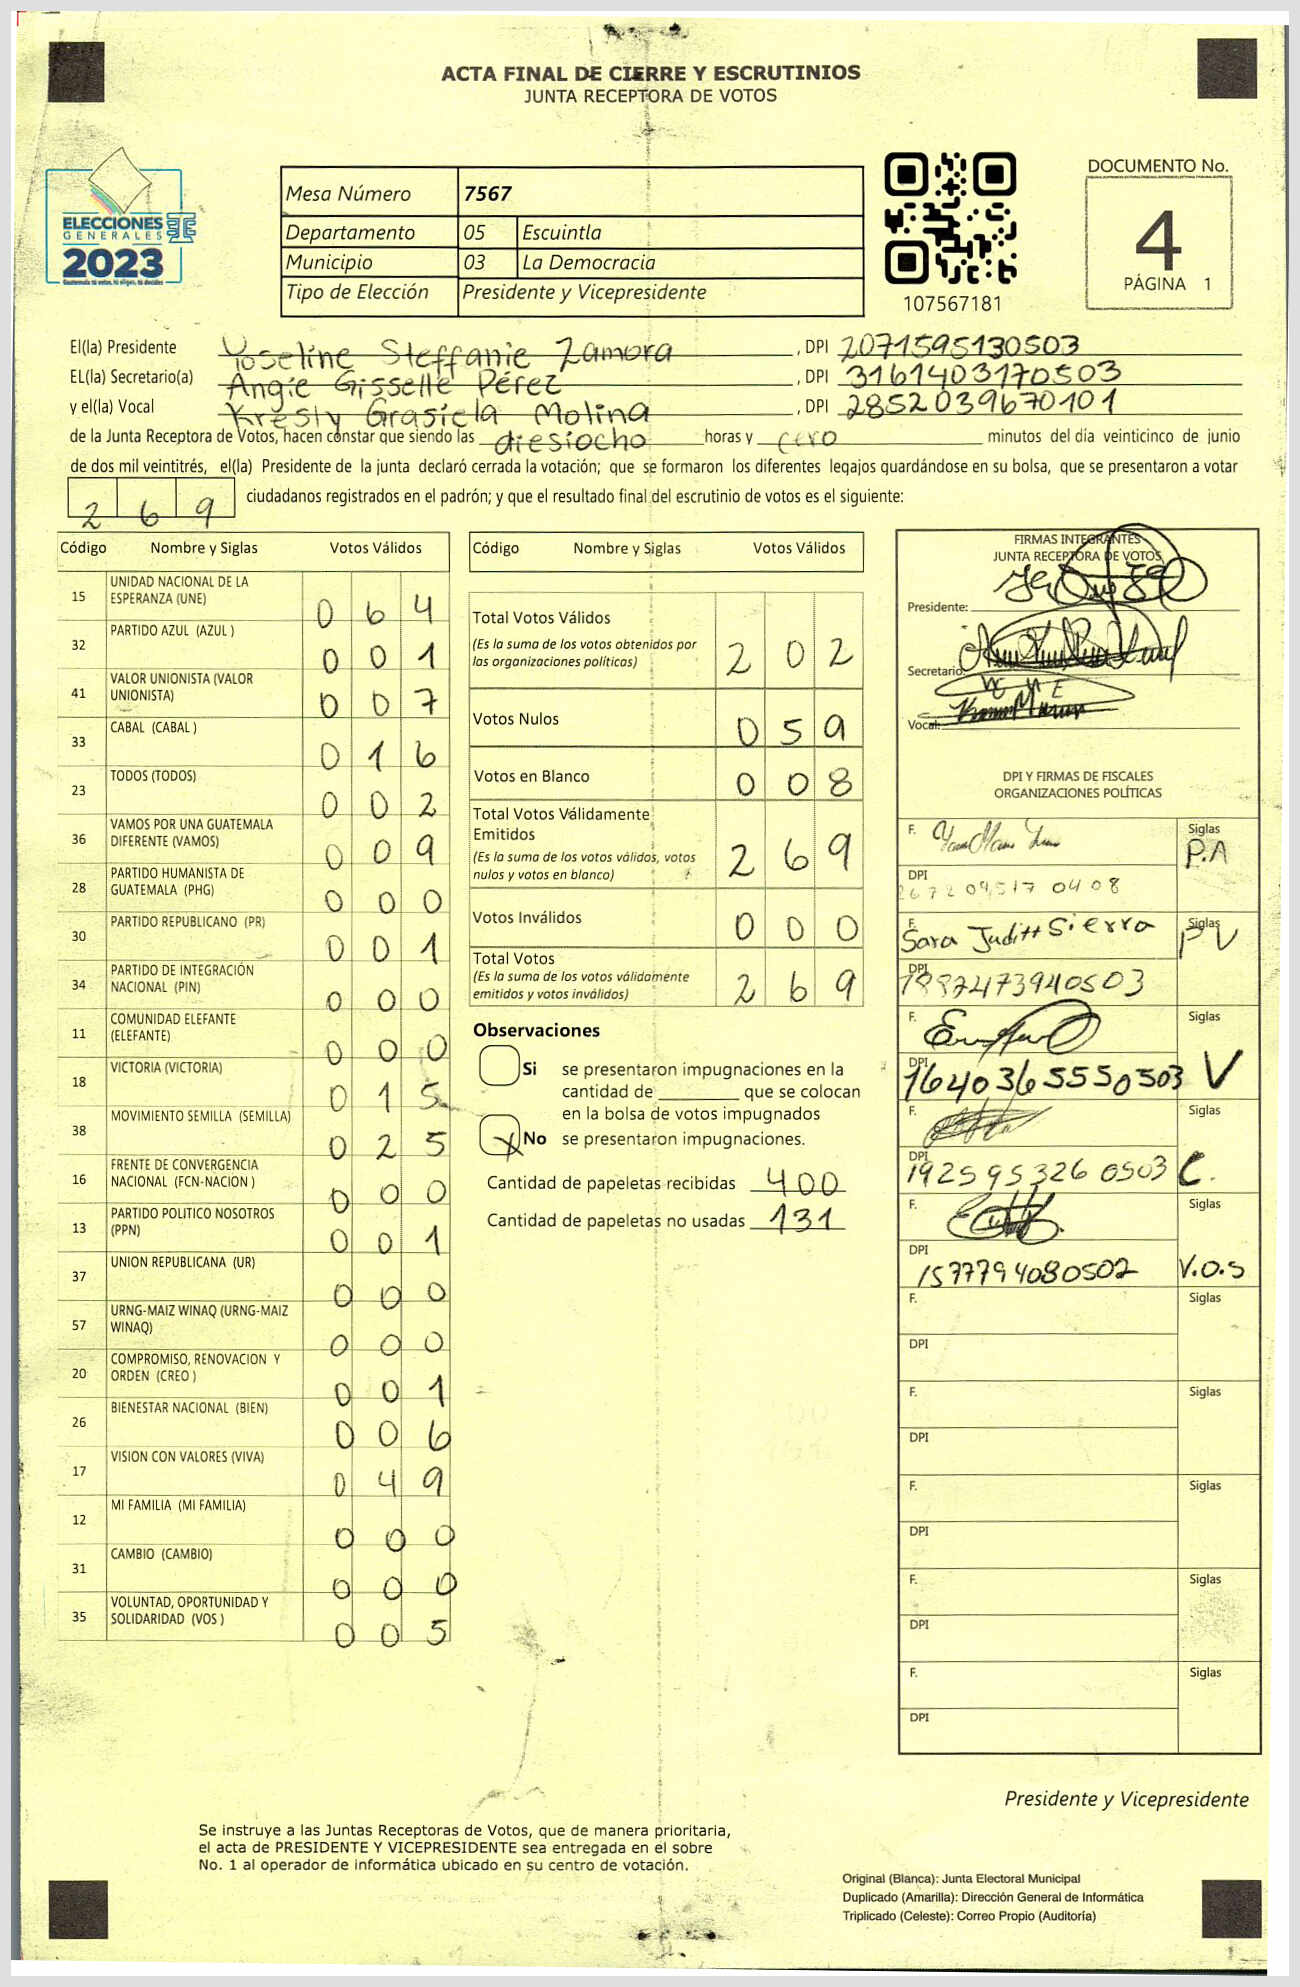 ACTA FINAL DE CIERRE Y ESCRUTINIOS
JUNTA RECEPTORA DE VOTOS
ELECCIONES
GENERALES
2023
Mesa Número 7567
Departamento 05 Escuintla
Municipio 03 La Democracia
Tipo de Elección Presidente y Vicepresidente
107567181
DOCUMENTO No.
4
PÁGINA 1
El(la) Presidente Yoseline Steffanie Zamora, DPI 2071595130503
EL(la) Secretario(a) Angie Gisselle Pérez, DPI 3161403170503
y el(la) Vocal Kresly Grasiela Molina, DPI 2852039670101
de la Junta Receptora de Votos, hacen constar que siendo las diesiocho horas y cero minutos del día veinticinco de junio
de dos mil veintitrés, el(la) Presidente de la junta declaró cerrada la votación; que se formaron los diferentes legajos guardándose en su bolsa, que se presentaron a votar
269 ciudadanos registrados en el padrón; y que el resultado final del escrutinio de votos es el siguiente:
Código Nombre y Siglas Votos Válidos
15 UNIDAD NACIONAL DE LA ESPERANZA (UNE) 064
32 PARTIDO AZUL (AZUL ) 001
41 VALOR UNIONISTA (VALOR UNIONISTA) 007
33 CABAL (CABAL ) 016
23 TODOS (TODOS) 002
36 VAMOS POR UNA GUATEMALA DIFERENTE (VAMOS) 009
28 PARTIDO HUMANISTA DE GUATEMALA (PHG) 000
30 PARTIDO REPUBLICANO (PR) 001
34 PARTIDO DE INTEGRACIÓN NACIONAL (PIN) 000
11 COMUNIDAD ELEFANTE (ELEFANTE) 000
18 VICTORIA (VICTORIA) 015
38 MOVIMIENTO SEMILLA (SEMILLA) 025
16 FRENTE DE CONVERGENCIA NACIONAL (FCN-NACION ) 000
13 PARTIDO POLITICO NOSOTROS (PPN) 001
37 UNION REPUBLICANA (UR) 000
57 URNG-MAIZ WINAQ (URNG-MAIZ WINAQ) 000
20 COMPROMISO, RENOVACION Y ORDEN (CREO ) 001
26 BIENESTAR NACIONAL (BIEN) 006
17 VISION CON VALORES (VIVA) 049
12 MI FAMILIA (MI FAMILIA) 000
31 CAMBIO (CAMBIO) 000
35 VOLUNTAD, OPORTUNIDAD Y SOLIDARIDAD (VOS ) 005
Código Nombre y Siglas Votos Válidos
Total Votos Válidos 202
(Es la suma de los votos obtenidos por
las organizaciones políticas)
Votos Nulos 059
Votos en Blanco 008
Total Votos Válidamente
Emitidos 269
(Es la suma de los votos válidos, votos
nulos y votos en blanco)
Votos Inválidos 000
Total Votos 269
(Es la suma de los votos válidamente
emitidos y votos inválidos)
Observaciones
Si se presentaron impugnaciones en la
cantidad de ________ que se colocan
en la bolsa de votos impugnados
X No se presentaron impugnaciones.
Cantidad de papeletas recibidas 400
Cantidad de papeletas no usadas 131
FIRMAS INTEGRANTES
JUNTA RECEPTORA DE VOTOS
Presidente:
Secretario:
Vocal:
DPI Y FIRMAS DE FISCALES
ORGANIZACIONES POLÍTICAS
F. Siglas P.A
DPI
F. Sara Juditt Sierra Siglas PV
DPI 1987473940503
F. Siglas V
DPI 1640365550503
F. Siglas C.
DPI 1925953260503
F. Siglas V.O.S
DPI 1577794080502
F. Siglas
DPI
F. Siglas
DPI
F. Siglas
DPI
F. Siglas
DPI
F. Siglas
DPI
Presidente y Vicepresidente
Se instruye a las Juntas Receptoras de Votos, que de manera prioritaria,
el acta de PRESIDENTE Y VICEPRESIDENTE sea entregada en el sobre
No. 1 al operador de informática ubicado en su centro de votación.
Original (Blanca): Junta Electoral Municipal
Duplicado (Amarilla): Dirección General de Informática
Triplicado (Celeste): Correo Propio (Auditoría)